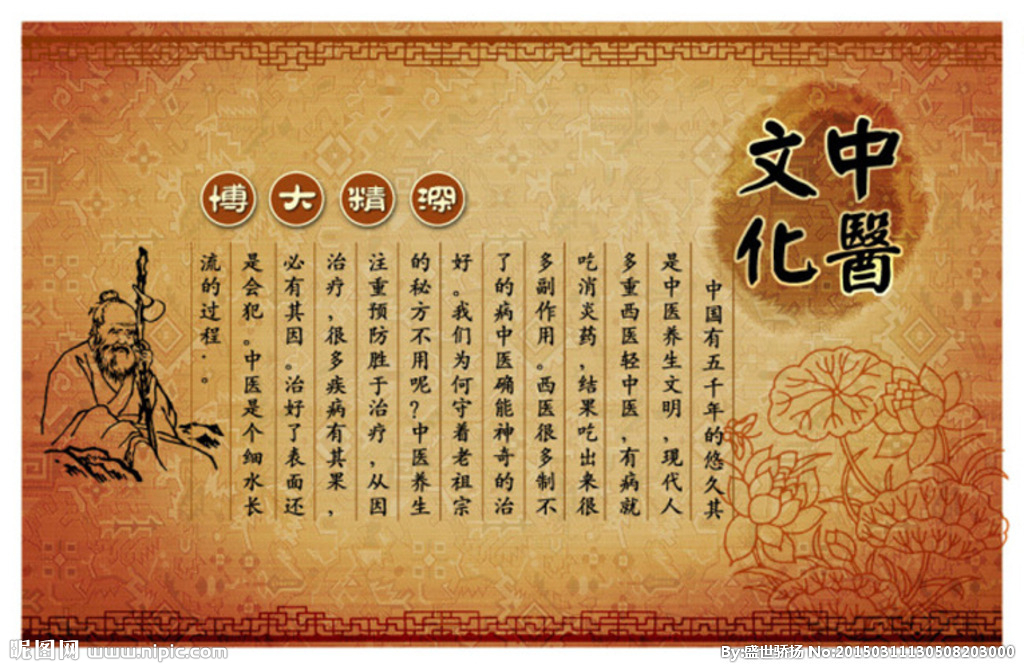 中醫
文化
博大精深
中国有五千年的悠久其
是中医养生文明，现代人
多重西医轻中医，有病就
吃消炎药，结果吃出来很
多副作用。西医很多制不
了的病中医确能神奇的治
好。我们为何守着老祖宗
的秘方不用呢？中医养生
注重预防胜于治疗，从因
治疗，很多疾病有其果，
必有其因。治好了表面还
是会犯。中医是个细水长
流的过程.。
昵图网 www.nipic.com
By:盛世骄扬 No:20150311130508203000